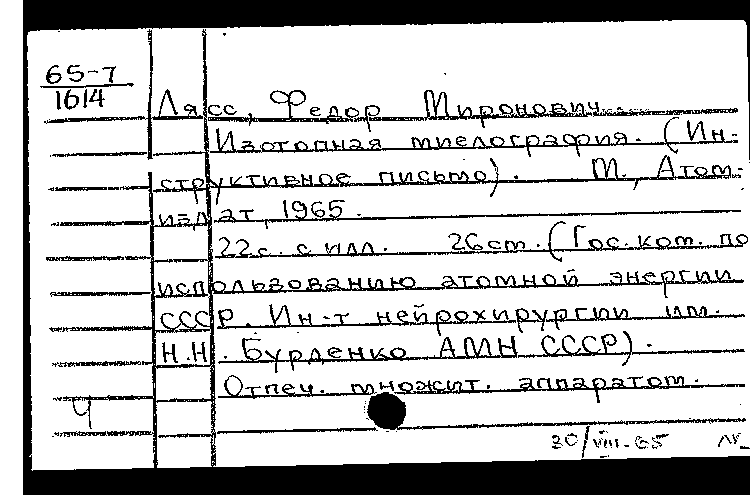 65-7
1614
Лясс, Федор Миронович.
Изотопная миелография. (Ин-
структивное письмо). М., Атом-
издат, 1965.
22с. с илл. 26см. (Гос. ком. по
использованию атомной энергии
СССР. Ин-т нейрохирургии им.
Н.Н. Бурденко АМН СССР).
Отпеч. множит. аппаратом.
Ч
30/VIII-65